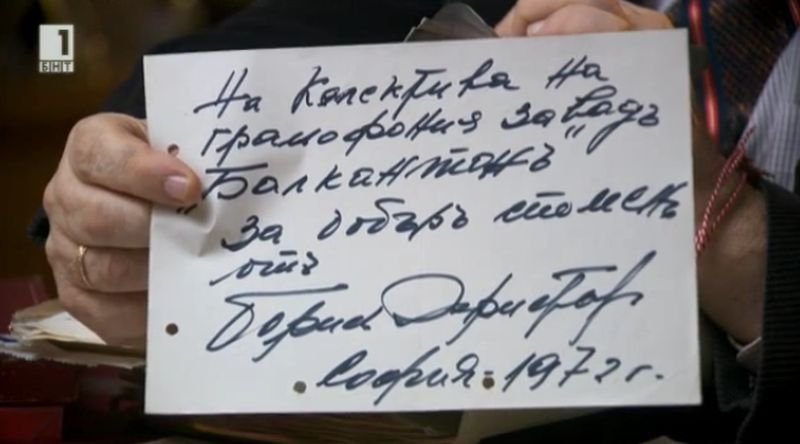 1
БНТ
На Колектива на
грамофония заводъ
„Балкантонъ"
за добъръ споменъ
отъ
Борис Христов
София - 1972 г.